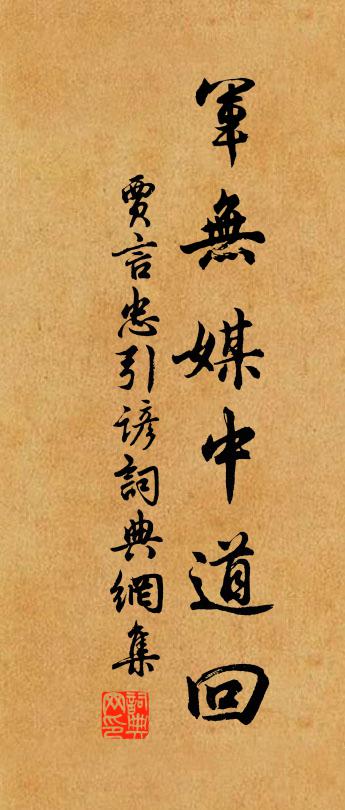 軍無媒中道回
賈言忠引諺詞典網集
詞典網印